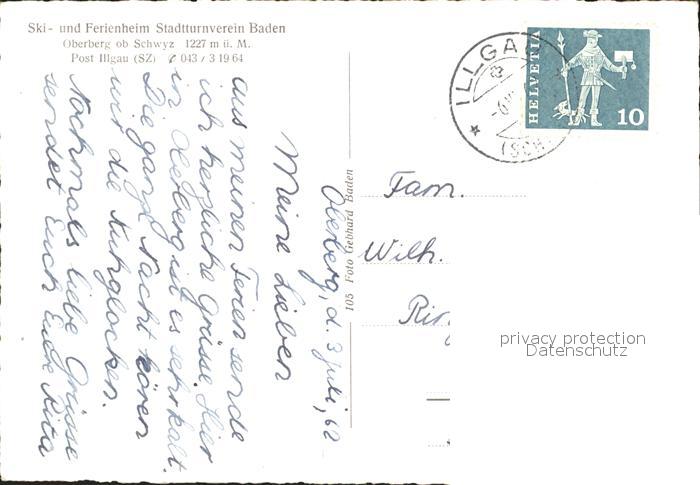 Ski- und Ferienheim Stadtturnverein Baden
Oberberg ob Schwyz 1227 m ü. M.
Post Illgau (SZ) ✆ 043 / 3 19 64
Oberberg, d. 3 Juli, 62
Meine Lieben
aus meinen Ferien sende
ich herzliche Grüsse. Hier
in Oberberg ist es sehr kalt.
Die ganze Nacht hören
wir die Kuhglocken.
Nochmals liebe Grüsse
sendet Euch Eure Rita
105 Foto Gebhard Baden
ILLGAU
(SCH
HELVETIA
10
Fam.
Wilh.
privacy protection
Datenschutz